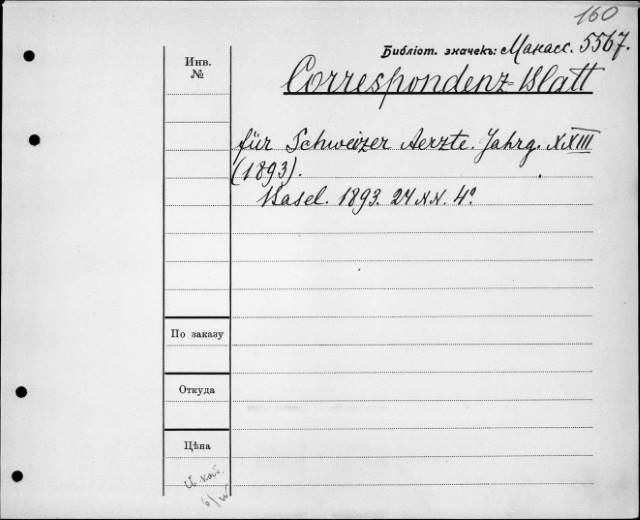 160
Библіот. значекъ: Манасс. 5567.
Инв.
№
Correspondenz-Blatt
für Schweizer Aerzte. Jahrg. XXIII
(1893).
Basel. 1893. 24 NN. 4°
По заказу
Откуда
Цѣна